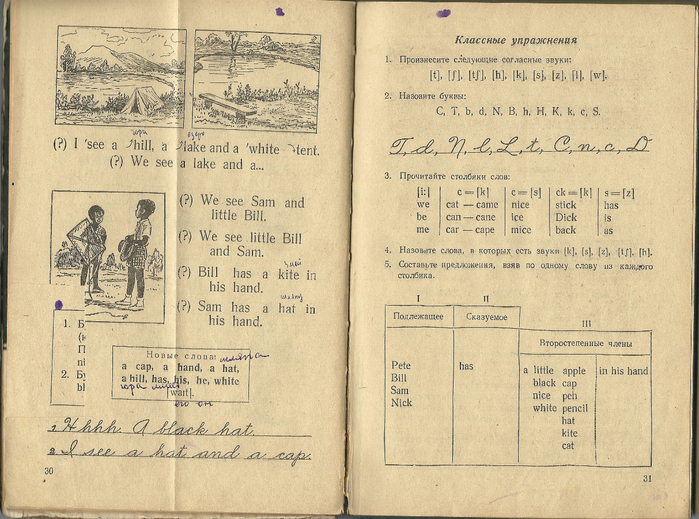 (?) I 'see a hill, a lake and a 'white tent.
(?) We see a lake and a...
(?) We see Sam and
little Bill.
(?) We see little Bill
and Sam.
(?) Bill has a kite in
his hand.
(?) Sam has a hat in
his hand.
1. Б
(к
П
2. Бу
Новые слова:
a cap, a hand, a hat,
a hill, has, his, he, white
[wait].
его он
1 H h h h. A black hat.
2 I see a hat and a cap.
30
Классные упражнения
1. Произнесите следующие согласные звуки:
[t], [ʃ], [tʃ], [h], [k], [s], [z], [l], [w].
2. Назовите буквы:
C, T, b, d, N, B, h, H, K, k, c, S.
T, d, N, l, L, t, C, n, c, D
3. Прочитайте столбики слов:
[i:] c = [k] c = [s] ck = [k] s = [z]
we cat — came nice stick has
be can — cane ice Dick is
me car — cape mice back as
4. Назовите слова, в которых есть звуки [k], [s], [z], [tʃ], [h].
5. Составьте предложения, взяв по одному слову из каждого
столбика.
I II III
Подлежащее Сказуемое Второстепенные члены
Pete has a little apple in his hand
Bill black cap
Sam nice pen
Nick white pencil
hat
kite
cat
31